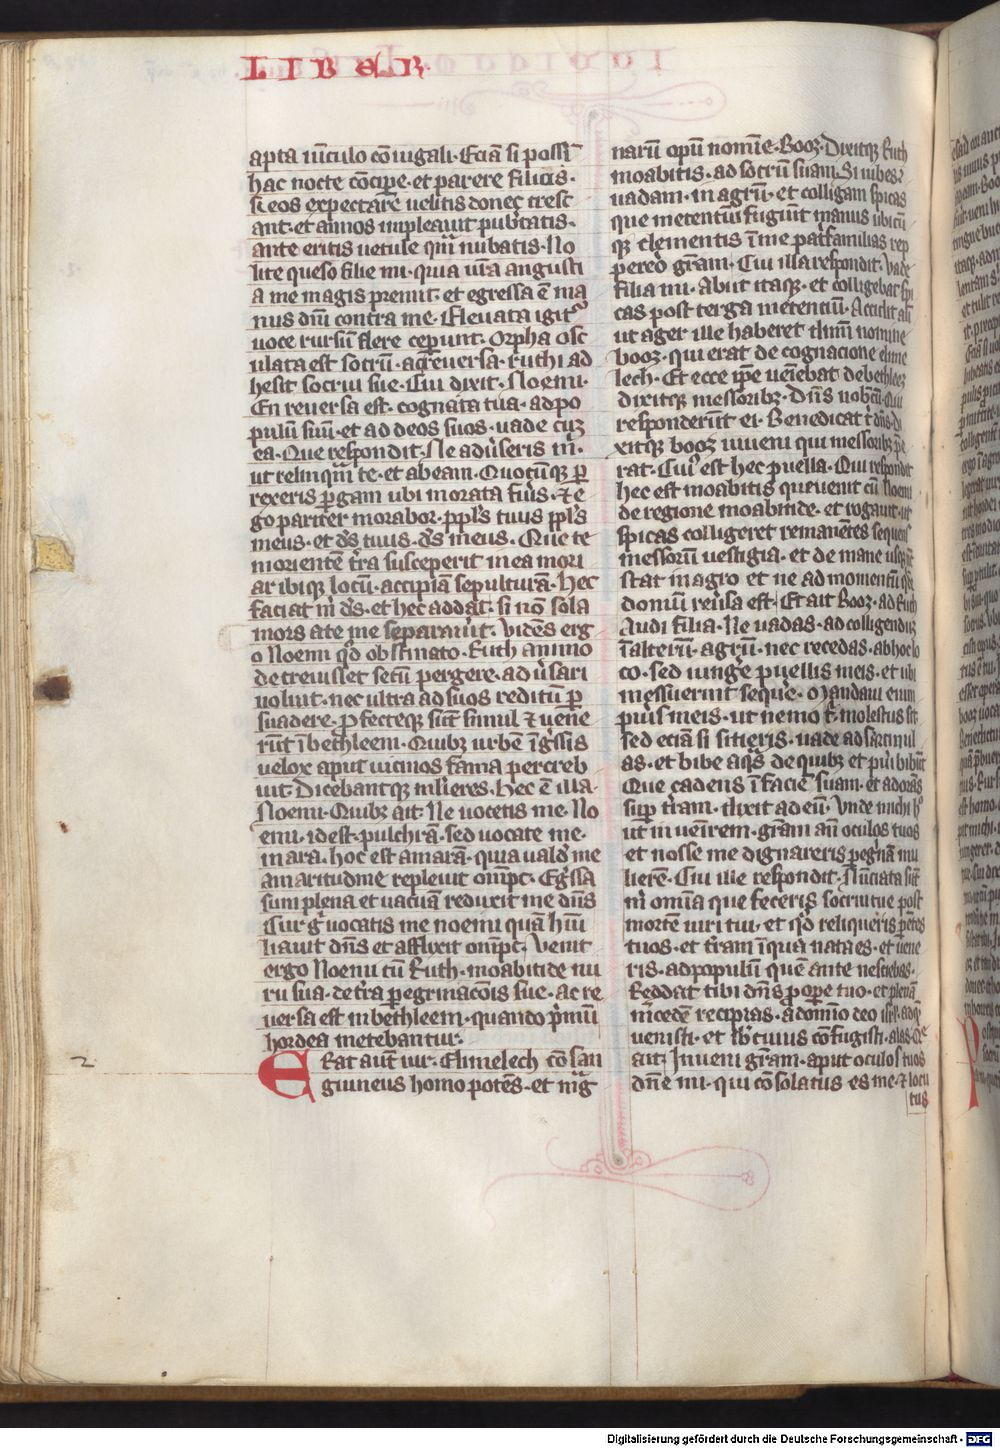 LIBER
apta uīculo cōiugali. Eciā si possī
hac nocte cōcipe. et parere filios.
si eos expectare uelitis donec cresc
ant. et annos impleant pubtatis.
ante eritis uetule qm̄ nubatis. No
lite queso filie mi. quia ur̄a angusti
a me magis premit. et egressa ē ma
nus dn̄i contra me. Eleuata igit᷑
uoce rursū flere ceperunt. Orpha osc
ulata est socrū. ac reuersa. ruth ad
hesit socrui sue. Cui dixit. Noemi.
En reuersa est. cognata tua. ad po
pulū suū. et ad deos suos. uade cuꝫ
ea. Que respondit. Ne aduseris m̄.
ut relinqm̄ te. et abeam. Quocūqꝫ p̄
rexeris pergam ubi morata fūis. ⁊ e
go pariter morabor. ppl̄s tuus ppl̄s
meus. et ds̄ tuus. ds̄ meus. Que te
morientē tr̄a susceperit in ea mori
ar ibiqꝫ locū. accipiā sepulturā. Hec
faciat m̄ ds̄. et hec addat. si nō sola
mors a te me separauit. Vidēs erg
o Noemi qd̄ obstinato. Ruth animo
decreuisset secū pergere. aduersari
noluit. nec ultra ad suos reditū p̄
suadere. Profecteqꝫ sūt simul ⁊ uene
rūt ī bethleem. Quibꝫ urbē īgressis
uelox aput uicinos fama percreb
uit. Dicebantqꝫ mlieres. Hec ē illa.
Noemi. Quibꝫ ait. Ne uocetis me. No
emi. id est. pulchrā. sed uocate me.
mara. hoc est amarā. quia ualde me
amaritudine repleuit om̄pc. Egssa
sum plena et uacuā reduxit me dn̄s
Cur gͦ uocatis me noemi quā hūi
liauit dn̄s et afflixit om̄pc. Venit
ergo Noemi cū Ruth. moabitide nu
ru sua. de tr̄a peregrinacōis sue. ac re
uersa est in bethleem. quando p̄mū
hordea metebantur.
Erat aut̄ uir. Elimelech cō san
guineus homo potēs. et mag
2
narū opū nomīe. Booz. Dixitqꝫ Ruth
moabitis. ad socrū suam. Si iubes.
uadam. in agrū. et colligam spicas
que metentiū fugiūt manus ubicū
qꝫ clementis ī me patfamilias rep
perero gr̄am. Cui illa respondit. Vade
filia mi. Abiit itaqꝫ. et colligebat spi
cas post terga metentiū. Accidit aūt
ut ager ille haberet dn̄m nomine
booz. qui erat de cognacione elime
lech. Et ecce ip̄e ueniebat de bethleeꝫ
dixitqꝫ messoribꝫ. Dn̄s uobcū. Qui
responderūt ei. Benedicat t̄ dn̄s. Di
xitqꝫ booz iuueni qui messoribꝫ p̄e
rat. Cuiꝰ est hec puella. Qui respondit
hec est moabitis que uenit cū Noemi
de regione moabitide. et rogauit. ut
spicas colligeret remanētes sequens
messorū uestigia. et de mane usqꝫ nūc
stat in agro et ne ad momentū qdē
domū reuersa est. Et ait Booz. ad Ruth
Audi filia. Ne uadas. ad colligendū
ī alterū. agrū. nec recedas. ab hoc lo
co. sed iunge puellis meis. et ubi
messuerint sequere. Mandaui enim
puis meis. ut nemo t̄. molestus sit
sed eciā si sitieris. uade ad sarcinul
as. et bibe aqs̄. de quibꝫ et pūi bibūt
Que cadens ī faciē suam. et adorās
sup tram. dixit ad eū. Vnde michi hͦ
ut in uenirem. gr̄am an̄ oculos tuos
et nosse me dignareris peregnā mu
lierē. Cui ille respondit. Nūciata sūt
m̄ omīa que feceris socrui tue post
mortē uiri tui. et qd̄ reliqueris pētes
tuos. et tr̄am ī qua nata es. et uene
ris. ad populū quē ante nesciebas.
Reddat tibi dn̄s pro ope tuo. et plenā
mcedē recipias. a domīo deo isrl. ad qm̄
uenisti. et sb cuius cōfugisti. alas. Que
ait. Inueni gr̄am. aput oculos tuos
dn̄e mi. qui cō solatus es me. ⁊ locu
tus
Digitalisierung gefördert durch die Deutsche Forschungsgemeinschaft - DFG